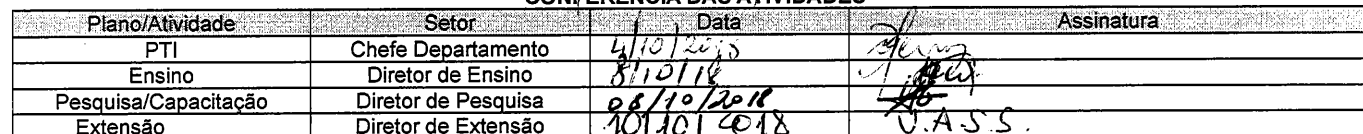 CONFERÊNCIA DAS ATIVIDADES
Plano/Atividade Setor Data Assinatura
PTI Chefe Departamento 4/10/2018
Ensino Diretor de Ensino 8/10/18
Pesquisa/Capacitação Diretor de Pesquisa 08/10/2018
Extensão Diretor de Extensão 10/10/2018 J.A.S.S.